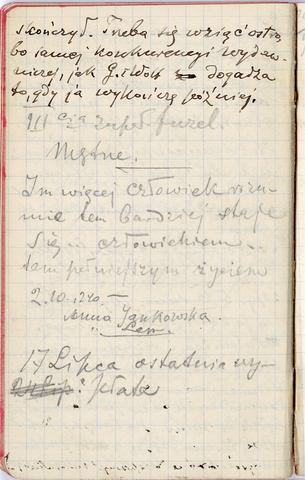 skończyć. Trzeba się wziąć ostro,
bo samej konkurencyi wydaw-
niczej, jak G. i Wolf dogadza
to, gdy ja wykończę później.
III cia zupeł
Mętne.
Im więcej człowiek rozu-
mie tem bardziej staje
się... człowiekiem...
tem pełniejszym życiem
2.10.1940. —
Anna Jankowska.
17 Lipca ostatnia wy-
płata